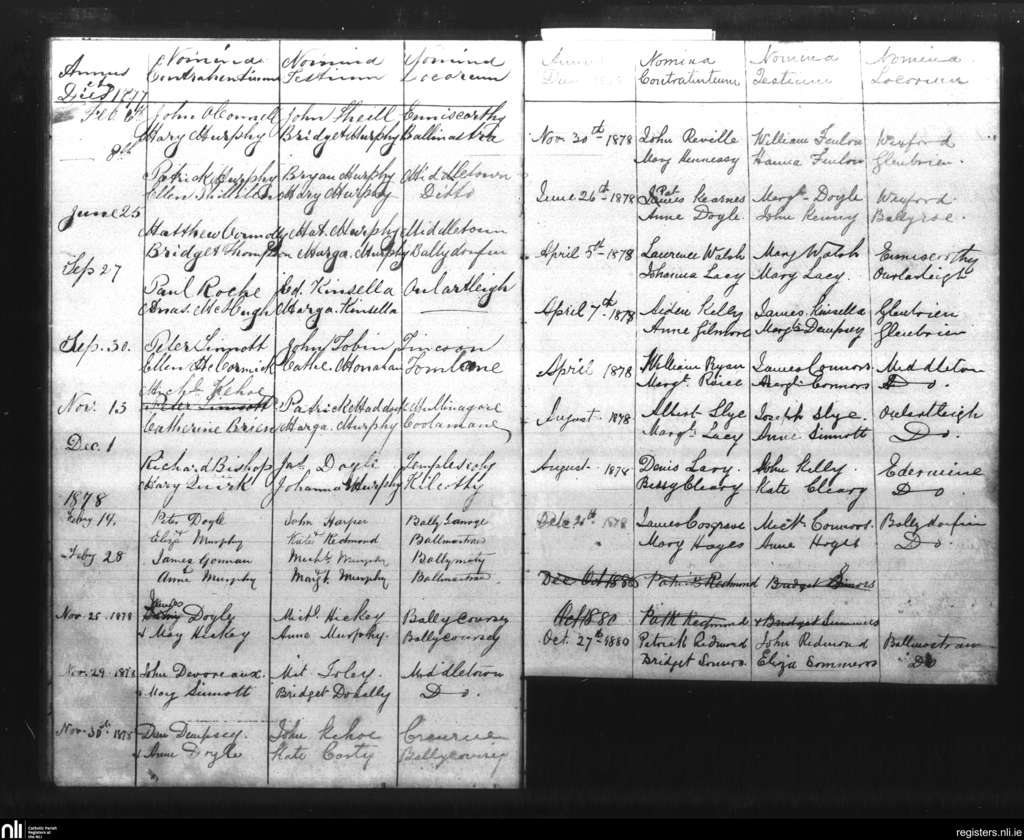 Annus Nomina Nomina Nomina
Dies 1877 Contrahentium Testium Locorum
Feb John O'Connell John Enniscorthy
Mary Murphy Bridget Murphy
8th
Patrick Murphy Bryan Murphy Middletown
Ellen Mary Murphy Ditto
June 25
Matthew Mat. Murphy Middletown
Bridget Thompson Marga. Murphy
Sep 27
Paul Roche Ed. Kinsella Oulartleigh
McHugh Marga. Kinsella
Sep. 30. Peter Sinnott John Tobin
Ellen McCormick Cathe. Monahan
Michl Kehoe
Nov. 15 Peter Sinnott Patrick
Catherine Marga. Murphy Coolamane
Dec. 1
Richard Bishop Jas. Doyle
Mary Quirk Johanna Murphy
1878
Feby 14. Peter Doyle John Harper
Eliza Murphy Kate Redmond
Feby 28 James Michl. Murphy
Anne Murphy Margt. Murphy
James
Nov. 25. 1878 Doyle Mick. Hickey Ballycoursey
& May Hickey Anne Murphy. Ballycoursey
Nov. 29 1878 John Devereaux. Mit Foley. Middletown
& Mary Sinnott Bridget Do.
Nov. 30th 1878 Dan Dempsey. John Kehoe
& Anne Doyle Kate
Nomina Nomina Nomina
Contrahentium Testium Locorum
Nov. 30th 1878 John Reville William Fenlon Wexford
Mary Hennessy Hanna Fenlon Glenbrien.
Pat
June 26th 1878 James Kearnes Margt. Doyle Wexford
Anne Doyle. John Kenny
April 5th 1878 Laurence Walsh Mary Walsh Enniscorthy
Johanna Lacy Mary Lacy. Ourlarleigh
April 7th 1878 Aiden Kelly James Kinsella Glenbrien
Anne Gilmore Margt Dempsey Glenbrien
April 1878 William Ryan James Connors Middleton
Margt. Connors Do.
August 1878 Albert Slye Joseph Slye. Oulartleigh
Margt. Lacy Anne Sinnott Do.
August 1878 Denis Lary. John Kelly. Edermine
Bessy Cleary Kate Cleary Do
1878 James Cosgrave Mick Connors. Ballydorfin
Mary Hayes Anne Do.
Dec Oct 1880 Patrick Redmond Bridget
Oct 1880 Redmond & Bridget Summers
Oct. 27th 1880 Patrick Redmond John Redmond
Bridget Eliza Sommers Do
nli
Catholic Parish
Registers at
the NLI
registers.nli.ie